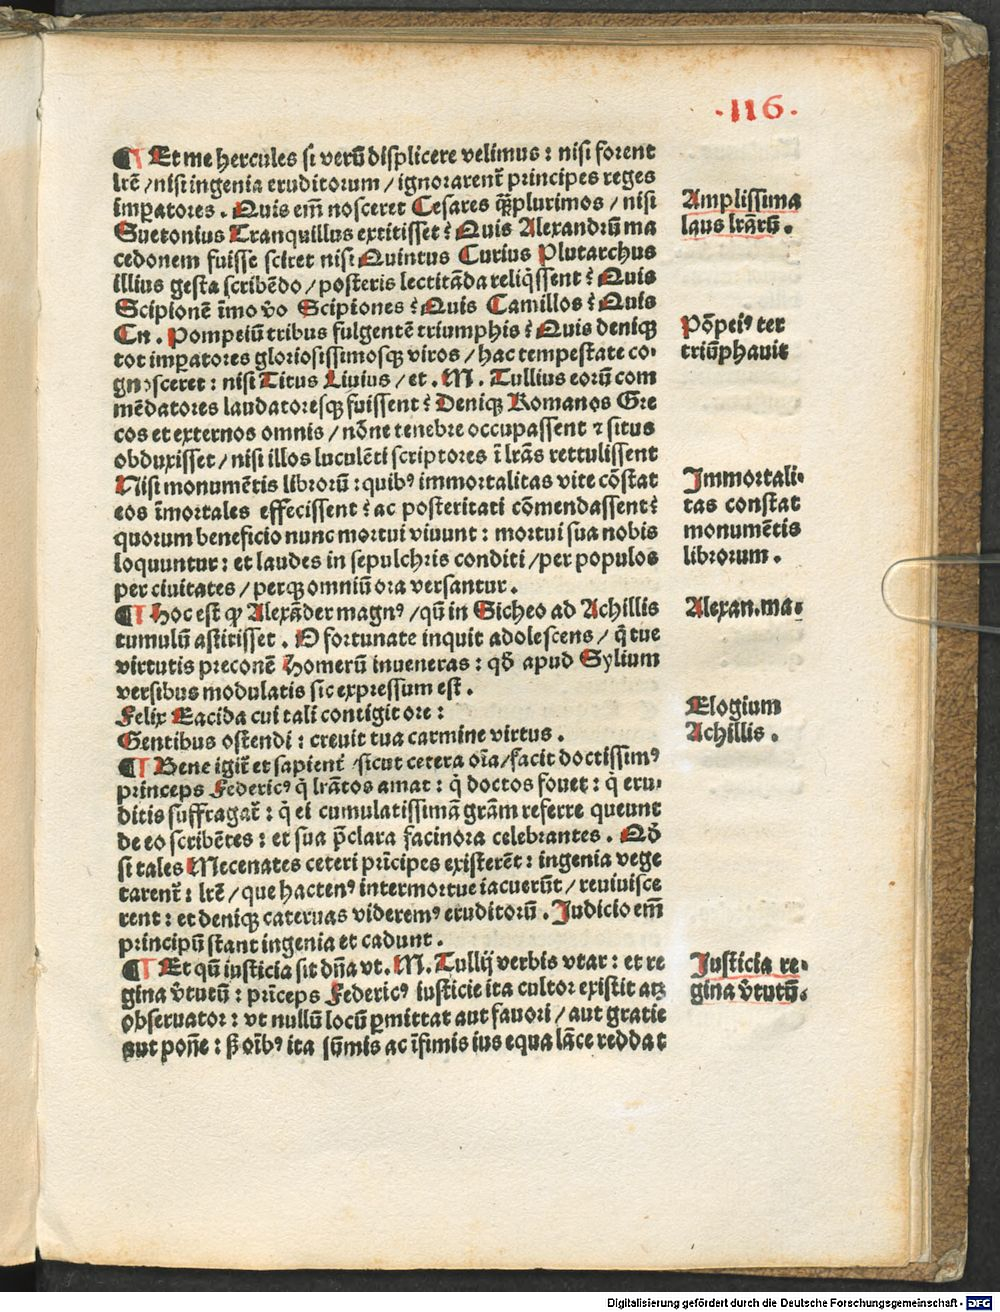 .116.
¶ Et me hercules si verū displicere velimus : nisi forent
lr̄e / nisi ingenia eruditorum / ignorarent᷑ principes reges
imp̱atores . Quis em̄ nosceret Cesares qq̄plurimos / nisi
Suetonius Tranquillus extitisset ? Quis Alexandrū ma
cedonem fuisse sciret nisi Quintus Curius Plutarchus
illius gesta scribēdo / posteris lectitāda reliq̄ssent ? Quis
Scipionē īmo v̄o Scipiones ? Quis Camillos ? Quis
Cn . Pompeiū tribus fulgentē triumphis ? Quis deniqꝫ
tot imp̱atores gloriosissimosqꝫ viros / hac tempestate co-
gnosceret : nisi Titus Liuius / et . M . Tullius eorū com
mēdatores laudatoresqꝫ fuissent ? Deniqꝫ Romanos Gre
cos et externos omnis / nōne tenebre occupassent ⁊ situs
obduxisset / nisi illos luculēti scriptores ī lr̄as rettulissent
Nisi monumētis librorū : quibꝰ immortalitas vite cōstat
eos īmortales effecissent ? ac posteritati cōmendassent ?
quorum beneficio nunc mortui viuunt : mortui sua nobis
loquuntur : et laudes in sepulchris conditi / per populos
per ciuitates / perqꝫ omniū ora versantur .
¶ Hoc est ꝙ Alexāder magnꝰ / qū in Sicheo ad Achillis
tumulū astitisset . O fortunate inquit adolescens / q̄ tue
virtutis preconē Homerū inueneras : qđ apud Sylium
versibus modulatis sic expressum est .
Felix Eacida cui tali contigit ore :
Gentibus ostendi : creuit tua carmine virtus .
¶ Bene igit᷑ et sapient᷑ / sicut cetera oīa / facit doctissimꝰ
princeps Federicꝰ q̇ lr̄atos amat : q̇ doctos fouet : q̇ eru-
ditis suffragat᷑ : q̇ ei cumulatissimā gr̄am referre queunt
de eo scribētes : et sua p̄clara facinora celebrantes . Qđ
si tales Mecenates ceteri prīcipes existerēt : ingenia vege
tarent᷑ : lr̄e / que hactenꝰ intermortue iacuerūt / reuiuisce
rent : et deniqꝫ cateruas videremꝰ eruditorū . Judicio em̄
principū stant ingenia et cadunt .
¶ Et qū iusticia sit dn̄a vt . M . Tullij verbis vtar : et re
gina v̄tutū : prīceps Federicꝰ iusticie ita cultor existit atqꝫ
obseruator : vt nullū locū ꝑmittat aut fauori / aut gratie
aut pon̄e : ß oībꝰ ita sūmis ac īfimis ius equa lāce reddat
Amplissima
laus lr̄arū .
Pōpeiꝰ ter
triūphauit
Immortali-
tas constat
monumētis
librorum .
Alexan.ma-
Elogium
Achillis .
Iusticia re-
gina v̄tutū.
Digitalisierung gefördert durch die Deutsche Forschungsgemeinschaft - DFG